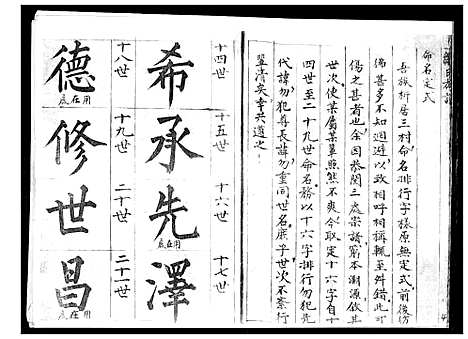 命名定式
吾族析居三村命名排行字樣原無定式前後彷
彿甚多不知迴避以致相呼相稱輒至舛錯此可
傷之甚者也余因恭閱三處宗譜窮本溯源敘其
世次使某屬某輩照然不爽今取定十六字自十
四世至二十九世命名務以十六字排行勿犯先
代諱勿犯尊長諱勿重同世名庶乎世次不紊行
輩清矣幸共遵之
十四世 希
十五世 承
十六世 先 底在用
十七世 澤
十八世 德 底在用
十九世 修
二十世 世
二十一世 昌 底在用